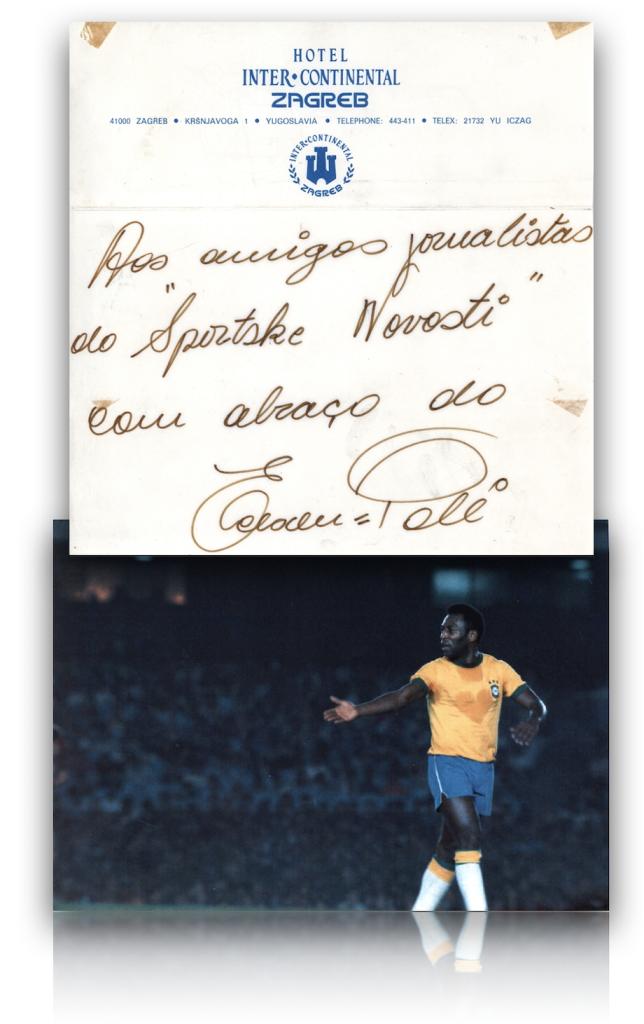 HOTEL
INTER•CONTINENTAL
ZAGREB
41000 ZAGREB • KRŠNJAVOGA 1 • YUGOSLAVIA • TELEPHONE: 443-411 • TELEX: 21732 YU ICZAG
INTER•CONTINENTAL
ZAGREB
Aos amigos jornalistas
do "Sportske Novosti"
com abraço do
Edson=Pelé